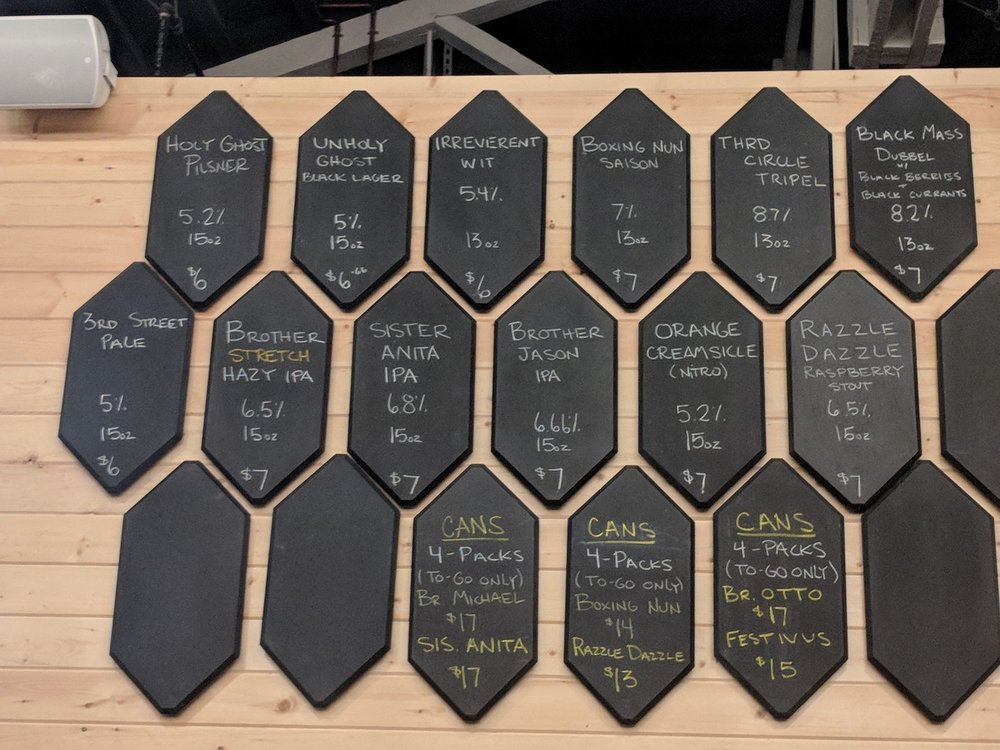 HOLY GHOST
PILSNER
5.2%
15oz
$6
UNHOLY
GHOST
BLACK LAGER
5%
15oz
$6.66
IRREVERENT
WIT
5.4%
13oz
$6
BOXING NUN
SAISON
7%
13oz
$7
THRD
CIRCLE
TRIPEL
8.7%
13oz
$7
BLACK MASS
DUBBEL
w/
BLACK BERRIES
+
BLACK CURRANTS
8.2%
13oz
$7
3RD STREET
PALE
5%
15oz
$6
BROTHER
STRETCH
HAZY IPA
6.5%
15oz
$7
SISTER
ANITA
IPA
6.8%
15oz
$7
BROTHER
JASON
IPA
6.66%
15oz
$7
ORANGE
CREAMSICLE
(NITRO)
5.2%
15oz
$7
RAZZLE
DAZZLE
RASPBERRY
STOUT
6.5%
15oz
$7
CANS
4-PACKS
(TO-GO ONLY)
BR. MICHAEL
$17
SIS. ANITA
$17
CANS
4-PACKS
(TO-GO ONLY)
BOXING NUN
$14
RAZZLE DAZZLE
$13
CANS
4-PACKS
(TO-GO ONLY)
BR. OTTO
$17
FESTIVUS
$15